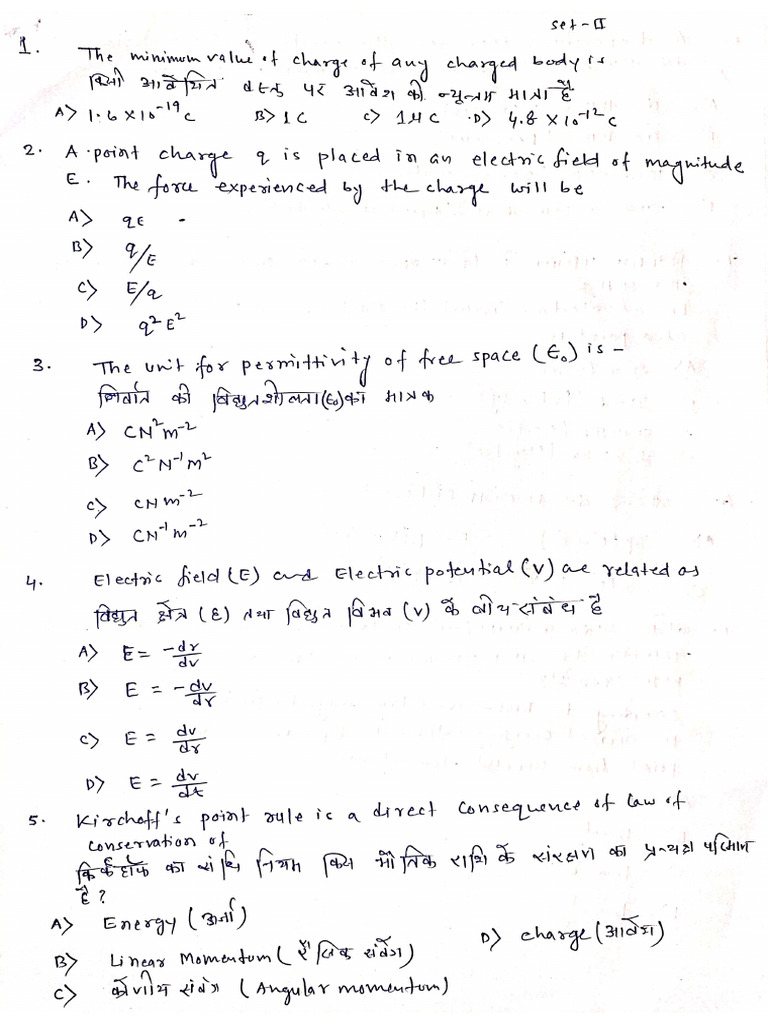 Set-II
1. The minimum value of charge of any charged body is
किसी आवेशित वस्तु पर आवेश की न्यूनतम मात्रा है
A> 1.6 x 10⁻¹⁹ C B> 1 C C> 1 μ C D> 4.8 x 10⁻¹² C
2. A point charge q is placed in an electric field of magnitude
E. The force experienced by the charge will be
A> qE
B> q/E
C> E/q
D> q² E²
3. The unit for permittivity of free space (ϵ₀) is -
निर्वात की विद्युतशीलता (ϵ₀) का मात्रक
A> CN²m⁻²
B> C² N⁻¹ m²
C> CN m⁻²
D> CN⁻¹ m⁻²
4. Electric field (E) and Electric potential (V) are related as
विद्युत क्षेत्र (E) तथा विद्युत विभव (V) के बीच संबंध है
A> E = -dr/dv
B> E = -dv/dr
C> E = dv/dr
D> E = dv/dt
5. Kirchoff's point rule is a direct consequence of law of
conservation of
किर्कहॉफ का संधि नियम किस भौतिक राशि के संरक्षण का प्रत्यक्ष परिणाम
है?
A> Energy (ऊर्जा)
B> Linear Momentum (रैखिक संवेग) D> charge (आवेश)
C> कोणीय संवेग (Angular momentum)